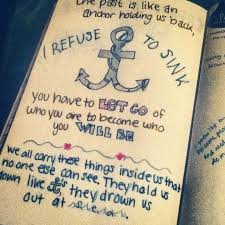 the past is like an
anchor holding us back,
I REFUSE TO SINK
you have to LET GO of
who you are to become who
you WILL BE
we all carry these things inside us that
no one else can see. They hold us
down like, they drown us
out at